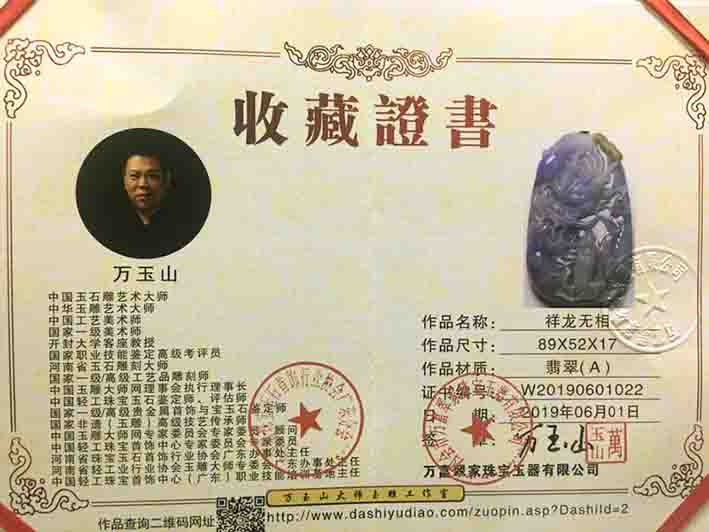 收藏證書
万玉山
中国玉石雕艺术大师
中华玉雕艺术大师
中国工艺美术师
国家一级美术师
开封大学客座教授
国家职业技能鉴定高级考评员
河南省玉石雕刻大师
国家一级/高级工艺品雕刻师
中国玉雕大师网理事会执行理事长
中国轻工珠宝玉石鉴定师、评估师
国家一级/高级贵金属首饰与宝玉石鉴定师
国家非遗(玉雕)高级技艺传承师
中国玉雕大师网专家委员会专家顾问
中国轻工珠宝首饰中心专家委员会委员
河南省珠宝玉石首饰行业协会广东办事处主任
中国轻工珠宝首饰中心(广东)职业技能培训基地主任
作品名称: 祥龙无相
作品尺寸: 89X52X17
作品材质: 翡翠(A)
证书编号: W20190601022
日 期: 2019年06月01日
签 万玉山
萬玉山
万富翠家珠宝玉器有限公司
万玉山大师玉雕工作室
作品查询二维码网址
http://www.dashiyudiao.com/zuopin.asp?DashiId=2